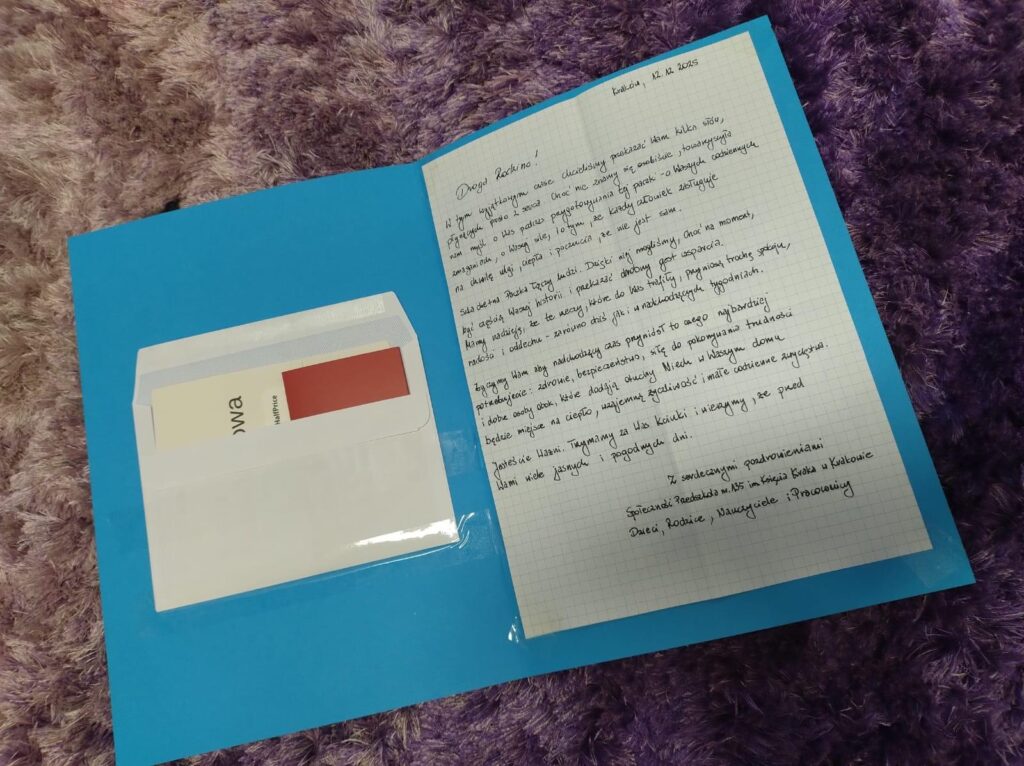 owa
HalfPrice
Kraków, 12.12.2025
Droga Rodzino!
W tym wyjątkowym czasie chcieliśmy przekazać Wam kilka słów,
płynących prosto z serca. Choć nie znamy się osobiście, towarzyszyła
nam myśl o Was podczas przygotowywania tej paczki - o Waszych codziennych
zmaganiach, o Waszej sile, i o tym, że każdy człowiek zasługuje
na chwilę ulgi, ciepła i poczucia, że nie jest sam.
Szlachetna Paczka łączy ludzi. Dzięki niej mogliśmy, choć na moment,
być częścią Waszej historii i przekazać drobny gest wsparcia.
Mamy nadzieję, że te rzeczy, które do Was trafiły, przyniosą trochę spokoju,
radości i oddechu - zarówno dziś jak i w nadchodzących tygodniach.
Życzymy Wam aby nadchodzący czas przyniósł to czego najbardziej
potrzebujecie: zdrowie, bezpieczeństwo, siłę do pokonywania trudności
i dobre osoby obok, które dodają otuchy. Niech w Waszym domu
będzie miejsce na ciepło, wzajemną życzliwość i małe codzienne zwycięstwa.
Jesteście Ważni. Trzymamy za Was kciuki i wierzymy, że przed
Wami wiele jasnych i pogodnych dni.
Z serdecznymi pozdrowieniami
Społeczność Przedszkola nr 135 im. Księcia Kraka w Krakowie
Dzieci, Rodzice, Nauczyciele i Pracownicy